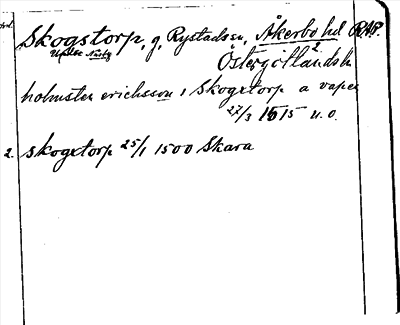 Skogstorp, g, Rystads sn, Åkerbo hd RAP.
Uppstr Närby
Östergötlands l.
holmsten ericsson i Skogxtorp a vapen
27/3 1515 u.o.
2. skogxtorp 25/1 1500 Skara